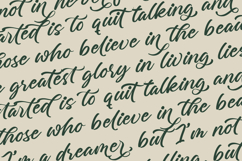 not in never
started is to quit talking and
those who believe in the beau
e greatest glory in living lies
started is to quit talking and
those who believe in the bea
I'm a dreamer but I'm not